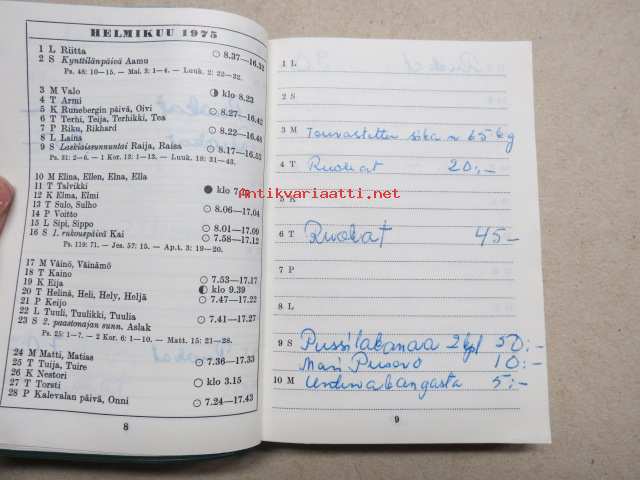 HELMIKUU 1975
1 L Riitta ○ 8.37—16.32
2 S Kynttilänpäivä Aamu
Ps. 48: 10—15. – Mal. 3: 1—4. – Luuk. 2: 22—32.
3 M Valo klo 8.23
4 T Armi
5 K Runebergin päivä, Oivi ○ 8.27—16.42
6 T Terhi, Teija, Terhikki, Tea
7 P Riku, Rikhard ○ 8.22—16.48
8 L Laina
9 S Laskiaissunnuntai Raija, Raisa ○ 8.17—16.53
Ps. 31: 2—6. – 1 Kor. 13: 1—13. – Luuk. 18: 31—43.
10 M Elina, Ellen, Elna, Ella
11 T Talvikki klo
12 K Elma, Elmi
13 T Sulo, Sulho ○ 8.06—17.04
14 P Voitto
15 L Sipi, Sippo ○ 8.01—17.09
16 S 1. rukouspäivä Kai ○ 7.58—17.12
Ps. 119: 71. – Jes. 57: 15. – Ap.t. 3: 19—20.
17 M Väinö, Väinämö
18 T Kaino ○ 7.53—17.17
19 K Eija klo 9.39
20 T Helinä, Heli, Hely, Heljä
21 P Keijo ○ 7.47—17.22
22 L Tuuli, Tuulikki, Tuulia
23 S 2. paastonajan sunn. Aslak ○ 7.41—17.27
Ps. 25: 1—7. – 2 Kor. 6: 1—10. – Matt. 15: 21—28.
24 M Matti, Matias
25 T Tuija, Tuire ○ 7.36—17.33
26 K Nestori
27 T Torsti klo 3.15
28 P Kalevalan päivä, Onni ○ 7.24—17.43
8
1 L
2 S
3 M 65 kg
4 T Ruokat 20:-
Antikvariaatti.net
5 K
6 T Ruokat 45-
7 P
8 L
9 S Pussilakanaa 2 kpl 50:-
Mari 10:-
10 M 5:-
9